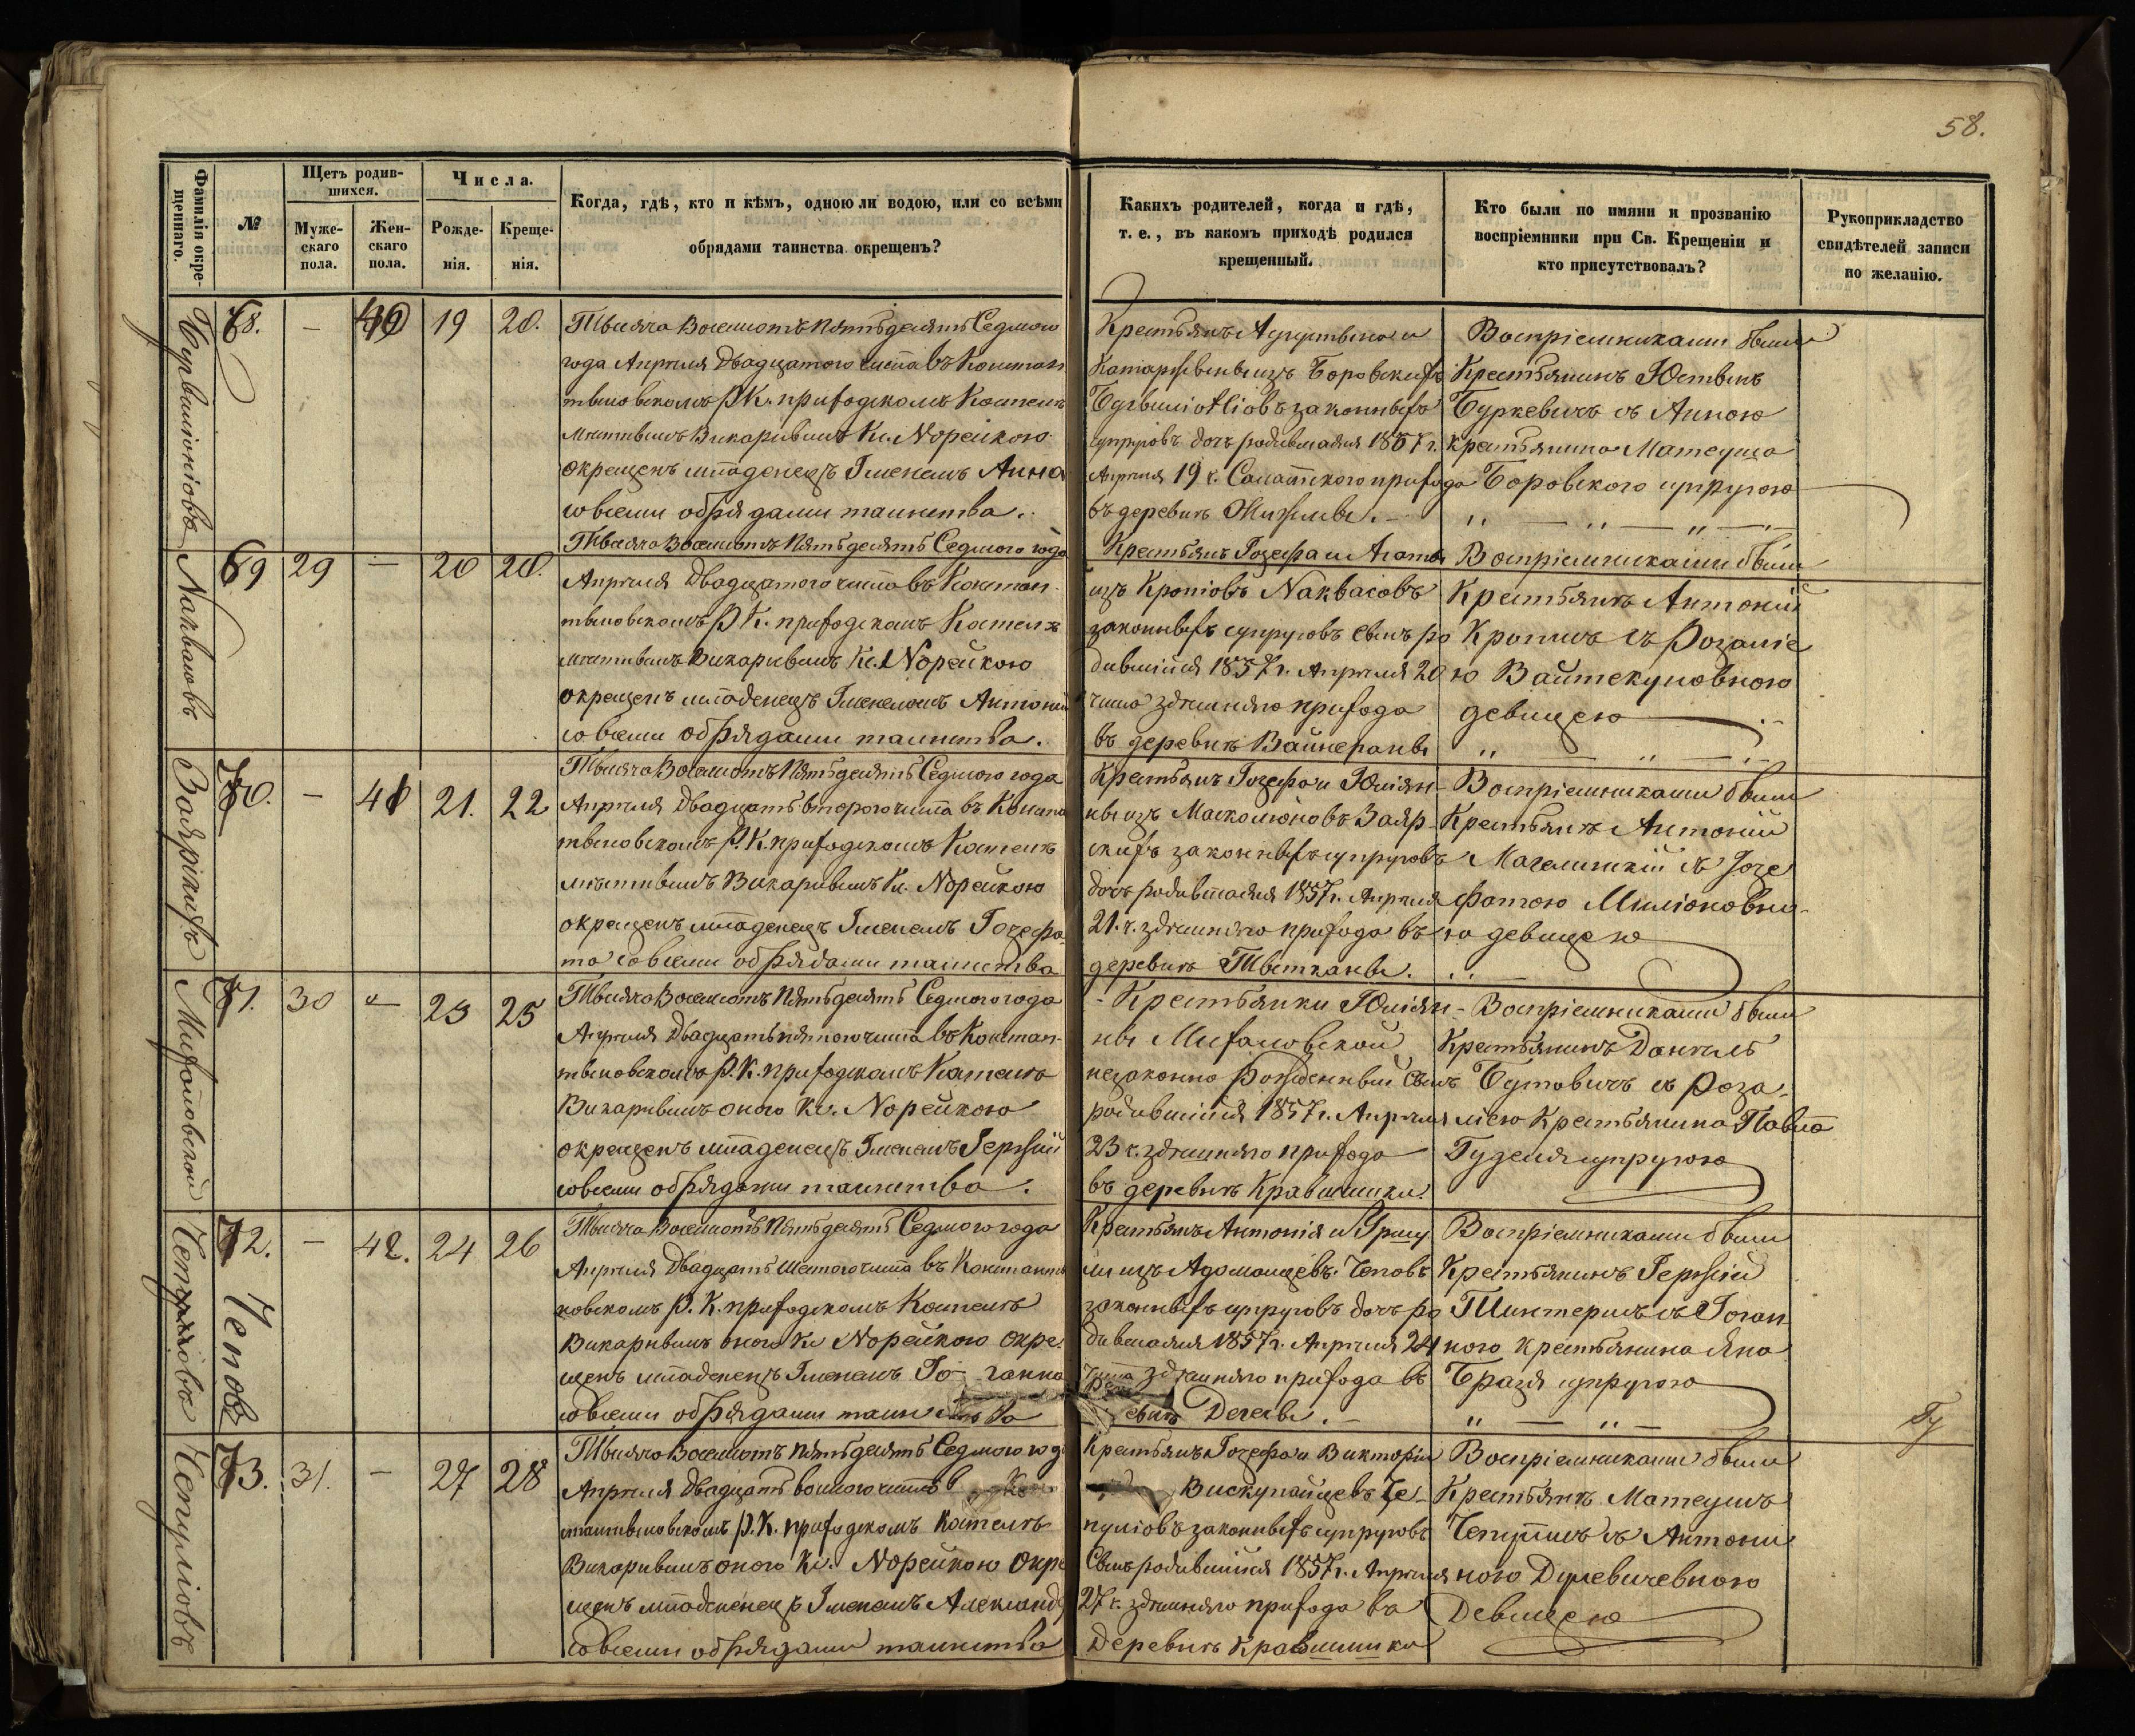 58.
Фамилія окре-
щеннаго.
№
Щетъ родив-
шихся.
Муже-
скаго
пола.
Жен-
скаго
пола.
Числа.
Рожде-
нія.
Креще-
нія.
Когда, гдѣ, кто и кѣмъ, одною ли водою, или со всѣми
обрядами таинства окрещенъ?
Какихъ родителей, когда и гдѣ,
т. е., въ какомъ приходѣ родился
крещенный.
Кто были по имяни и прозванію
воспріемники при Св. Крещеніи и
кто присутствовалъ?
Рукоприкладство
свидѣтелей записи
по желанію.
68. — 40 19 20.
Тысяча Восемсотъ Пятьдесятъ Седмого
года Апрѣля Двадцатого числа въ Констан
тыновскомъ Р.К. приходскомъ Костелѣ
мѣстнымъ Викарнымъ Кс. Норейкою
окрещенъ младенецъ Именемъ Анна
совсеми обрядами таинства.
Крестьянъ Августына и
изъ Боровскихъ
законныхъ
супруговъ дочь родившаяся 1857 г.
Апрѣля 19 ч. Салатского прихода
въ деревнѣ
Воспріемниками были
Крестьянинъ Юстынъ
Буркевичъ съ Анною
крестьянина Матеуша
Боровского супругою
Наквасовъ
69 29 — 20 20.
Тысяча Восемсотъ Пятьдесятъ Седмого года
Апрѣля Двадцатого числа въ Констан
тыновскомъ Р.К. приходскомъ Костелѣ
мѣстнымъ Викарнымъ Кс. Норейкою
окрещенъ младенецъ Именемъ Антоній
совсеми обрядами таинства.
Крестьянъ Іозефа и Агаты
изъ Кропіовъ Наквасовъ
законныхъ супруговъ сынъ ро
дившійся 1857 г. Апрѣля 20
числа здѣшняго прихода
въ деревнѣ
Воспріемниками были
Крестьянъ Антоній
Кропишъ съ Розаліе
ю Вайтекуновною
девицею
70. — 41 21. 22
Тысяча Восемсотъ Пятьдесятъ Седмого года
Апрѣля Двадцать второго числа въ Конста
тыновскомъ Р.К. приходскомъ Костелѣ
мѣстнымъ Викарнымъ Кс. Норейкою
окрещенъ младенецъ Именемъ Іозефа
та совсеми обрядами таинства
Крестьянъ Іозефа и Юліян-
ны изъ Масколюновъ Заяр-
скихъ законныхъ супруговъ
дочь родившаяся 1857 г. Апрѣля
21. ч. здѣшняго прихода въ
деревнѣ
Воспріемниками были
Крестьянъ Антоній
съ Іозе
фатою
ю девицею
Мифайовской
71. 30 — 23 25
Тысяча Восемсотъ Пятьдесятъ Седмого года
Апрѣля Двадцать пятого числа въ Констан-
тыновскомъ Р.К. приходскомъ Костелѣ
Викарнымъ оного Кс. Норейкою
окрещенъ младенецъ Именемъ Іержій
совсеми обрядами таинства.
Крестьянки Юліян-
ны
незаконно рожденный сынъ
родившійся 1857 г. Апрѣля
23 ч. здѣшняго прихода
въ деревнѣ Кравшишки.
Воспріемниками были
Крестьянинъ Даніель
Бутовичъ съ Роза-
ліею Крестьянина Павла
супругою
Чепов
72. — 42. 24 26
Тысяча Восемсотъ Пятьдесятъ Седмого года
Апрѣля Двадцать шестого числа въ Константы
новскомъ Р. К. приходскомъ Костелѣ
Викарнымъ оного Кс Норейкою окре-
щенъ младенецъ Именемъ Іо- ганна
совсеми обрядами таинства
Крестьянъ Антонія и Уршу
ли изъ Адомойцевъ Чеповъ
законныхъ супруговъ дочь ро
дившаяся 1857 г. Апрѣля 24
числа здѣшняго прихода въ
Дегевы.
Воспріемниками были
Крестьянинъ Іержій
съ Іоган
ною крестьянина Яна
супругою
Чепуліовъ
73. 31. — 27 28
Тысяча Восемсотъ Пятьдесятъ Седмого год
Апрѣля Двадцать восмого числа
стантыновскомъ Р.К. приходскомъ Костелѣ
Викарнымъ оного Кс. Норейкою Окре
щенъ младенецъ Именемъ Александ
совсеми обрядами таинства
Крестьянъ Іозефа и Викторіи
Бискупайцевъ Че-
пуліовъ законныхъ супруговъ
Сынъ родившійся 1857 г. Апрѣля
27 ч. здѣшняго прихода въ
деревнѣ Кравшишки
Воспріемниками были
Крестьянъ Матеушъ
съ Антони
ною
Девицею